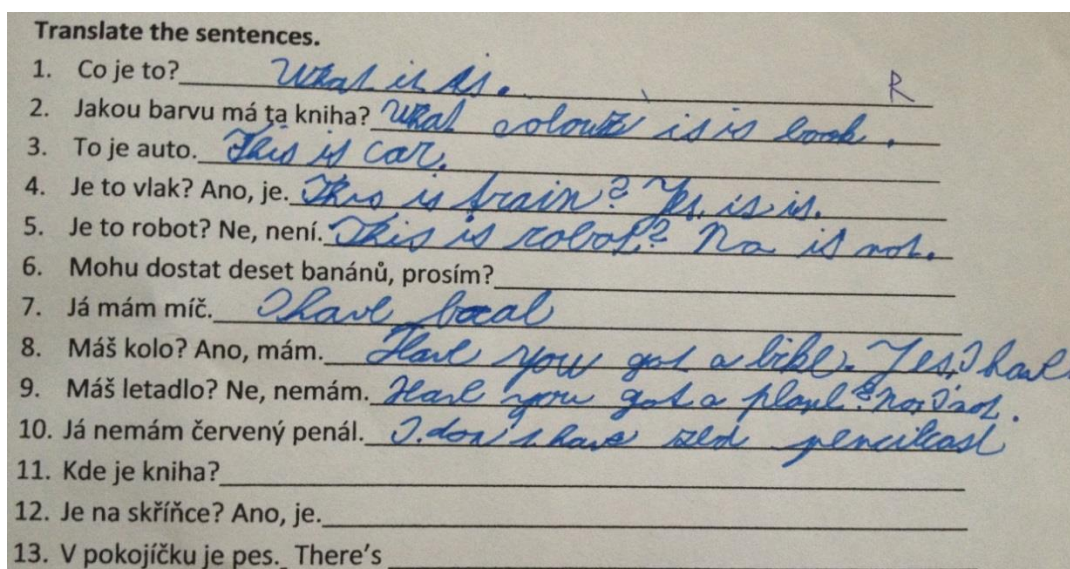 Translate the sentences.
1. Co je to? What is is.
R
2. Jakou barvu má ta kniha? What colour is is book.
3. To je auto. This is car.
4. Je to vlak? Ano, je. This is train? Yes, is is.
5. Je to robot? Ne, není. This is robot? No is not.
6. Mohu dostat deset banánů, prosím?
7. Já mám míč. I have
8. Máš kolo? Ano, mám. Have you got a bike. Yes, I have
9. Máš letadlo? Ne, nemám. Have you got a plane? No, I not.
10. Já nemám červený penál. I don't have red
11. Kde je kniha?
12. Je na skříňce? Ano, je.
13. V pokojíčku je pes. There's